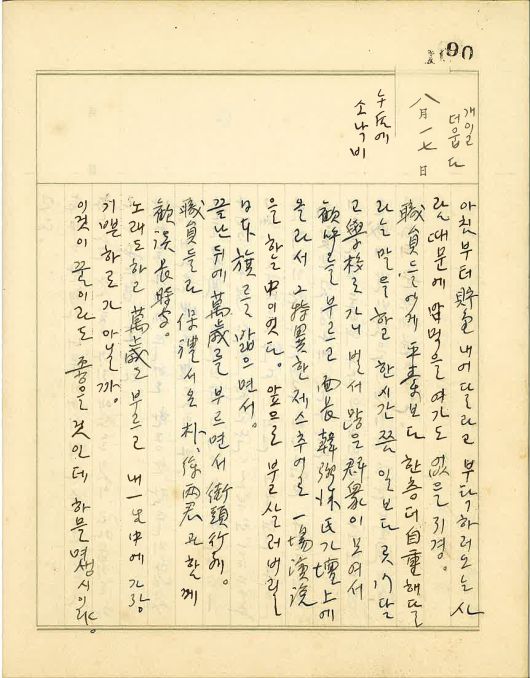 90
개이고
더웁다
八月一七日
午后에
소낙비
아침부터 貯金 내어달라고 부탁하러 오는 사
람 때문에 밥 먹을 여가도 없을 지경。
職員들에게 平素보다 한층 더 自重해 달
라는 말을 하고 한 시간 쯤 일 보다
고 學校로 가니 벌서 많은 群衆이 모여서
歡呼를 부르고 面長 韓 氏가 壇上에
올라서 그 特異한 제스추어로 一場演說
을 하는 中이었다。 앞으로 불살러버릴
日本旗를 밟으면서。
끝난 뒤에 萬歲를 부르면서 街頭行進。
職員들과 保禮서 온 朴、徐 両君과 함께
歡談長時間。
노래도 하고 萬歲도 부르고 내 一生中에 가장
기쁠 하로가 아닐까。
이것이 꿈이라도 좋을 것인데 하물며 생시이랴。